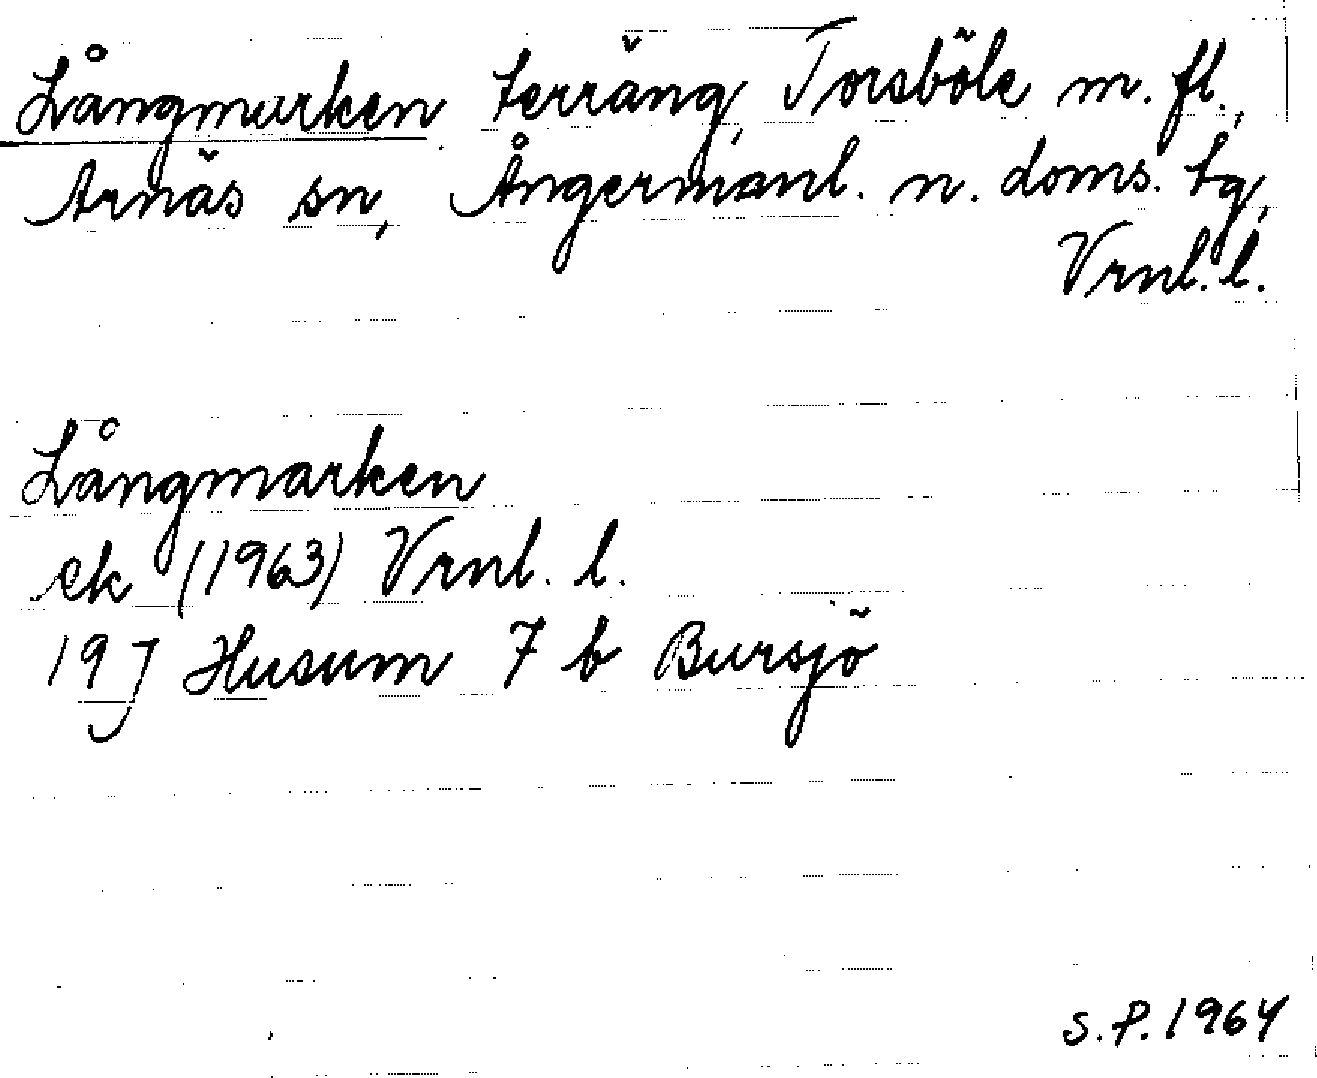 Långmarken terräng, Torsböle m. fl.,
Arnäs sn, Ångermanl. n. doms. tg,
Vrnl. l.
Långmarken
ek (1963) Vrnl. l.
19 J Husum 7 b Bursjö
S.P. 1964